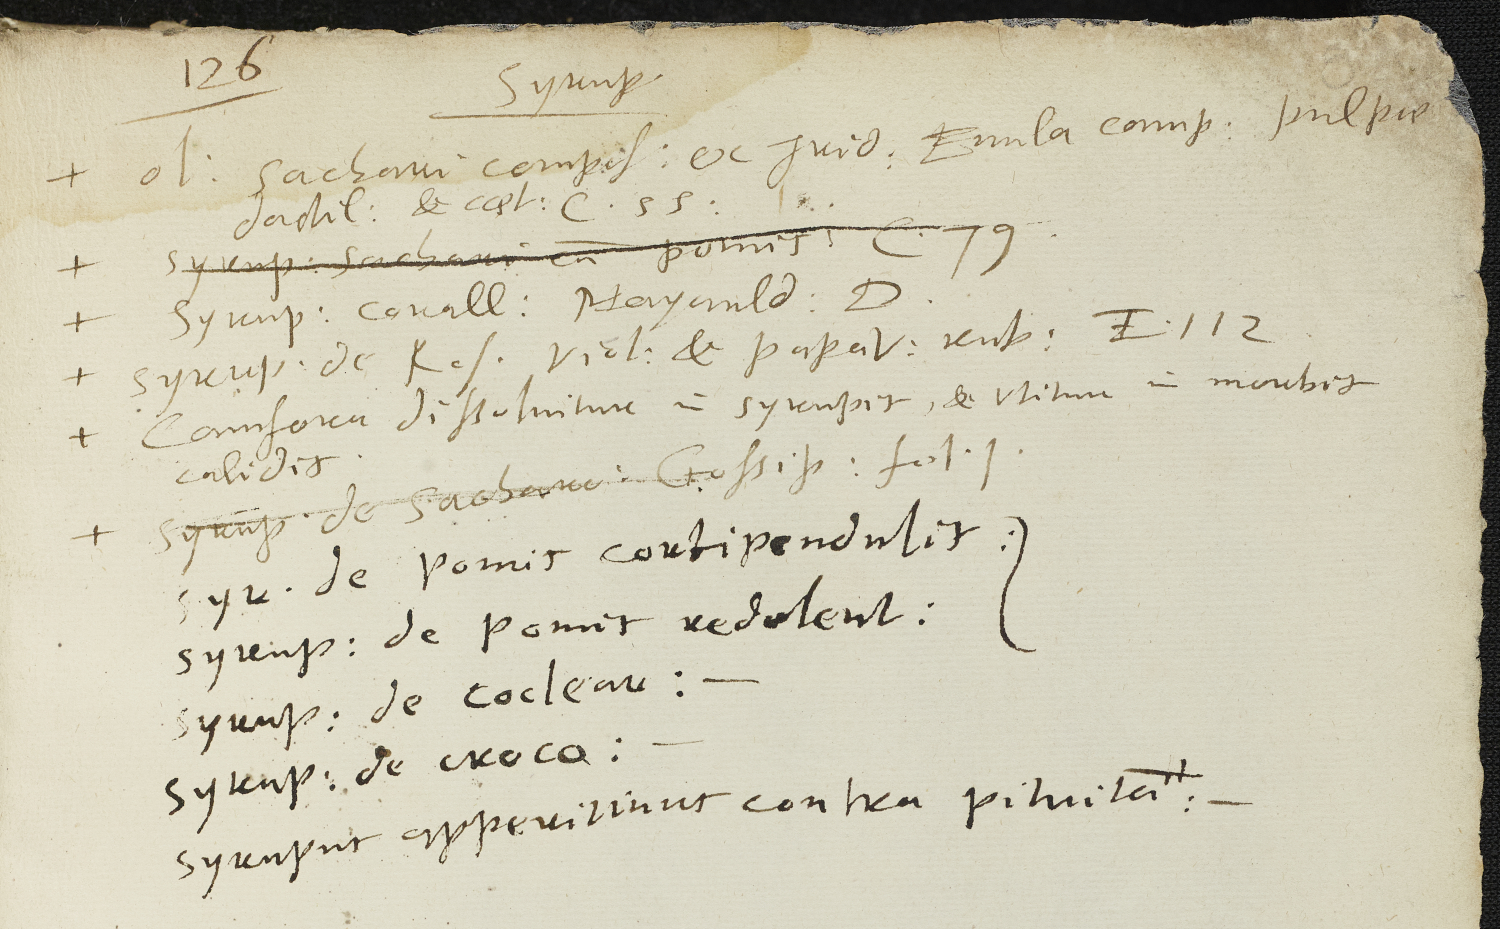 126 Syrup.
+ ol: sachari compos: ex Irid: Enula comp: pulpae
dactil: & caet: C. 55:
+ syrup: sachari cū pomis: C. 79.
+ Syrup: corall: Mayanld: D.
+ syrup. de Ros. viol: & papav: rub: E. 112
+ Camfora dissoluitur in syrupis, & vtitur in morbis
calidis.
+ syrup. de Sachari: Gossip: fol. 1.
syr. de pomis cortipendulis:
syrup: de pomis redolent:
syrup: de coclear: —
syrup: de croco: —
syrupus apperitiuus contra pituitā: —